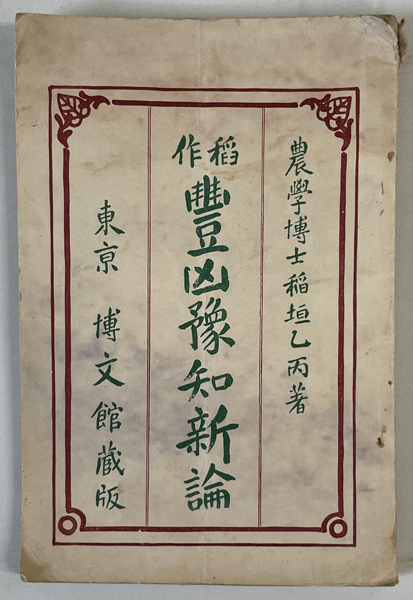 農學博士稲垣乙丙著
稻作
豐凶豫知新論
東京 博文館蔵版